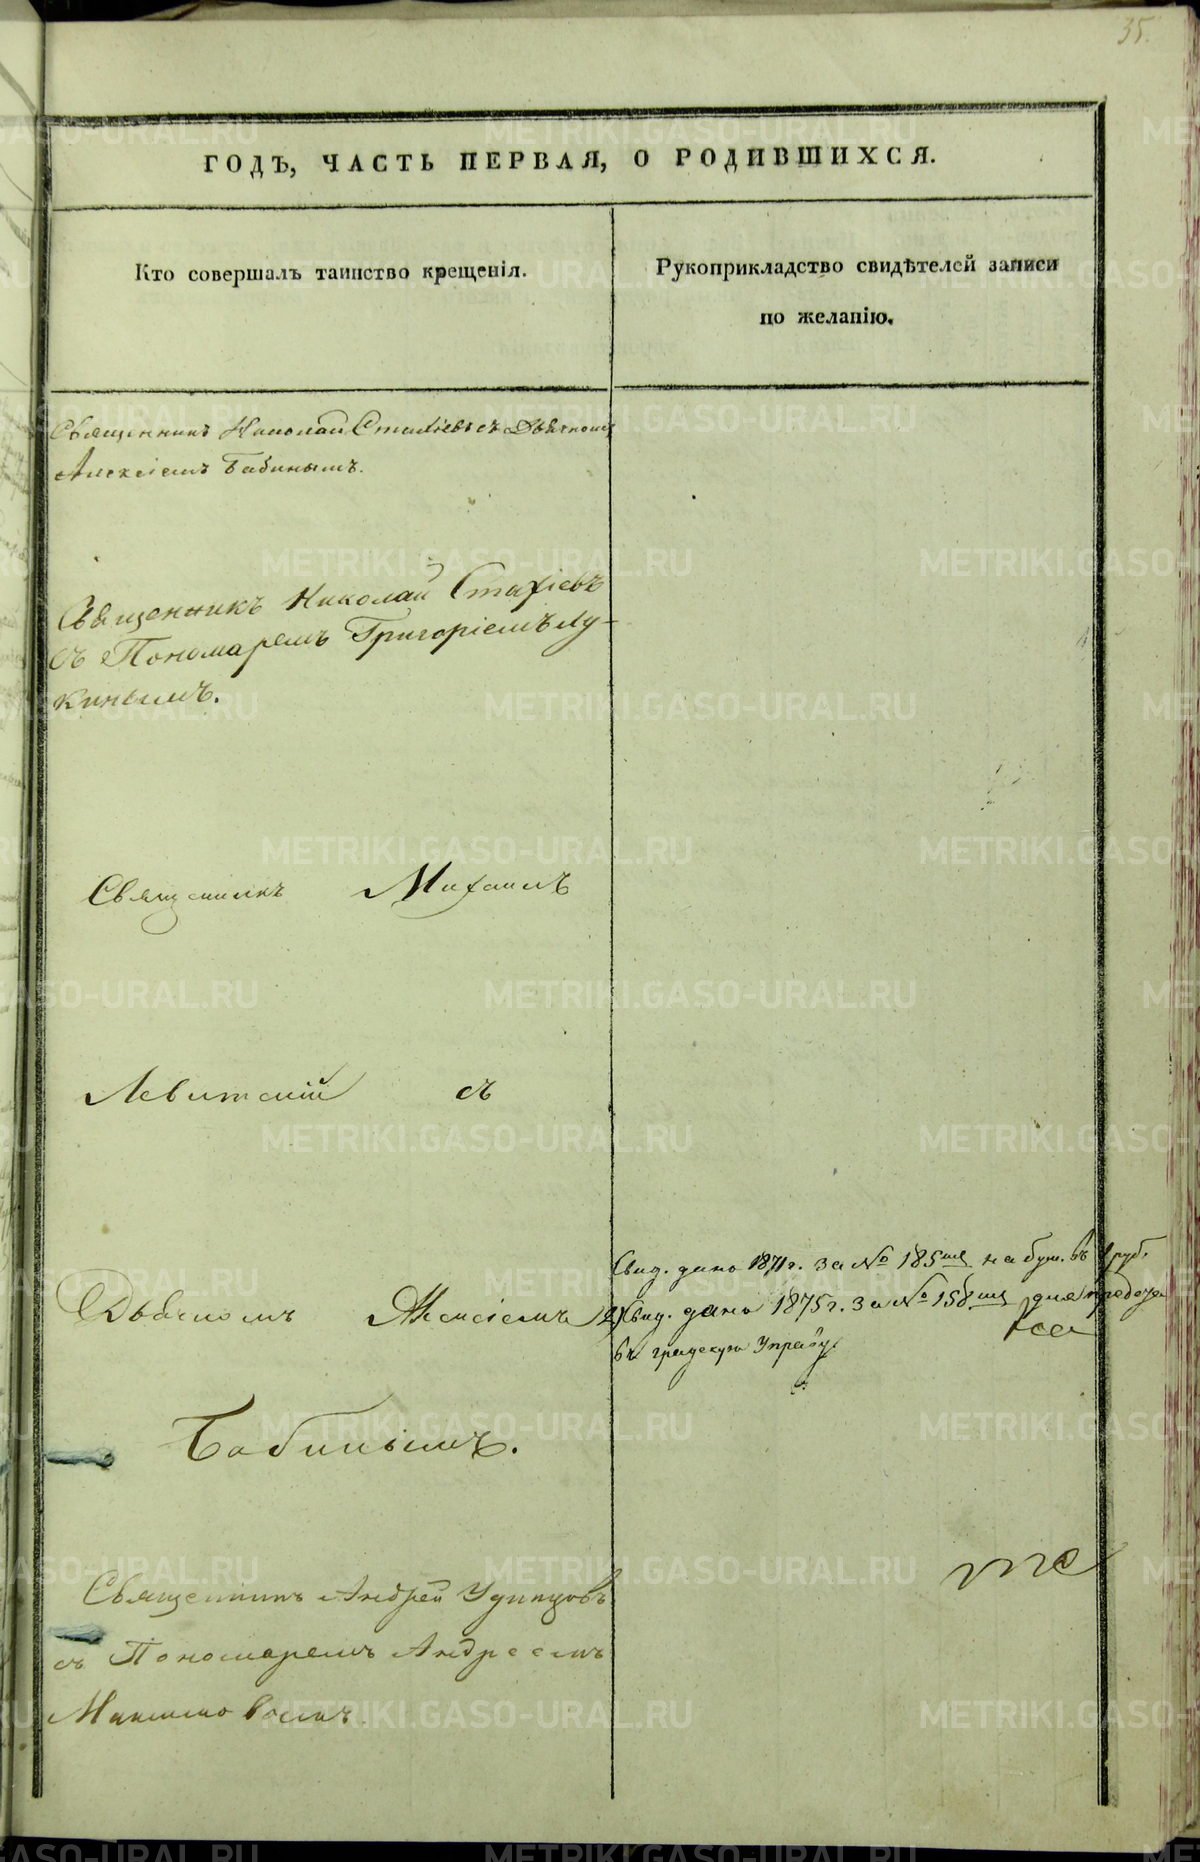 35.
ГОДЪ, ЧАСТЬ ПЕРВАЯ, О РОДИВШИХСЯ.
Кто совершалъ таинство крещенія.
Рукоприкладство свидѣтелей записи
по желанію.
Священникъ Николай Стахіевъ съ Дьячкомъ
Алексіемъ Бабинымъ.
Священникъ Николай Стахіевъ
съ Пономаремъ Григоріемъ Лу-
кинымъ.
Священникъ Михаилъ
Левитскій съ
Дьячкомъ Алексіемъ
Бабинымъ.
Свид. дано 1871 г. за № 185мъ на бум. въ 1 руб.
2) Свид. дано 1875 г. за № 158мъ для предст.
въ градскую Управу.
Священникъ Андрей Удинцовъ
съ Пономаремъ Андреемъ
METRIKI.GASO-URAL.RU